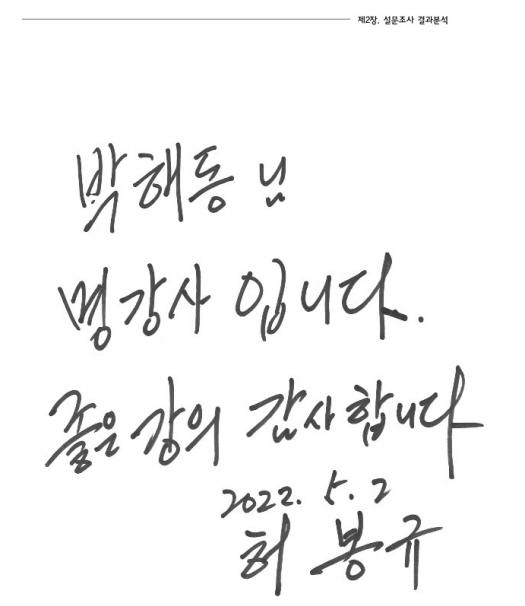 제2장. 설문조사 결과분석
박해동 님
명강사 입니다.
좋은 강의 감사합니다
2022. 5. 2
허봉규